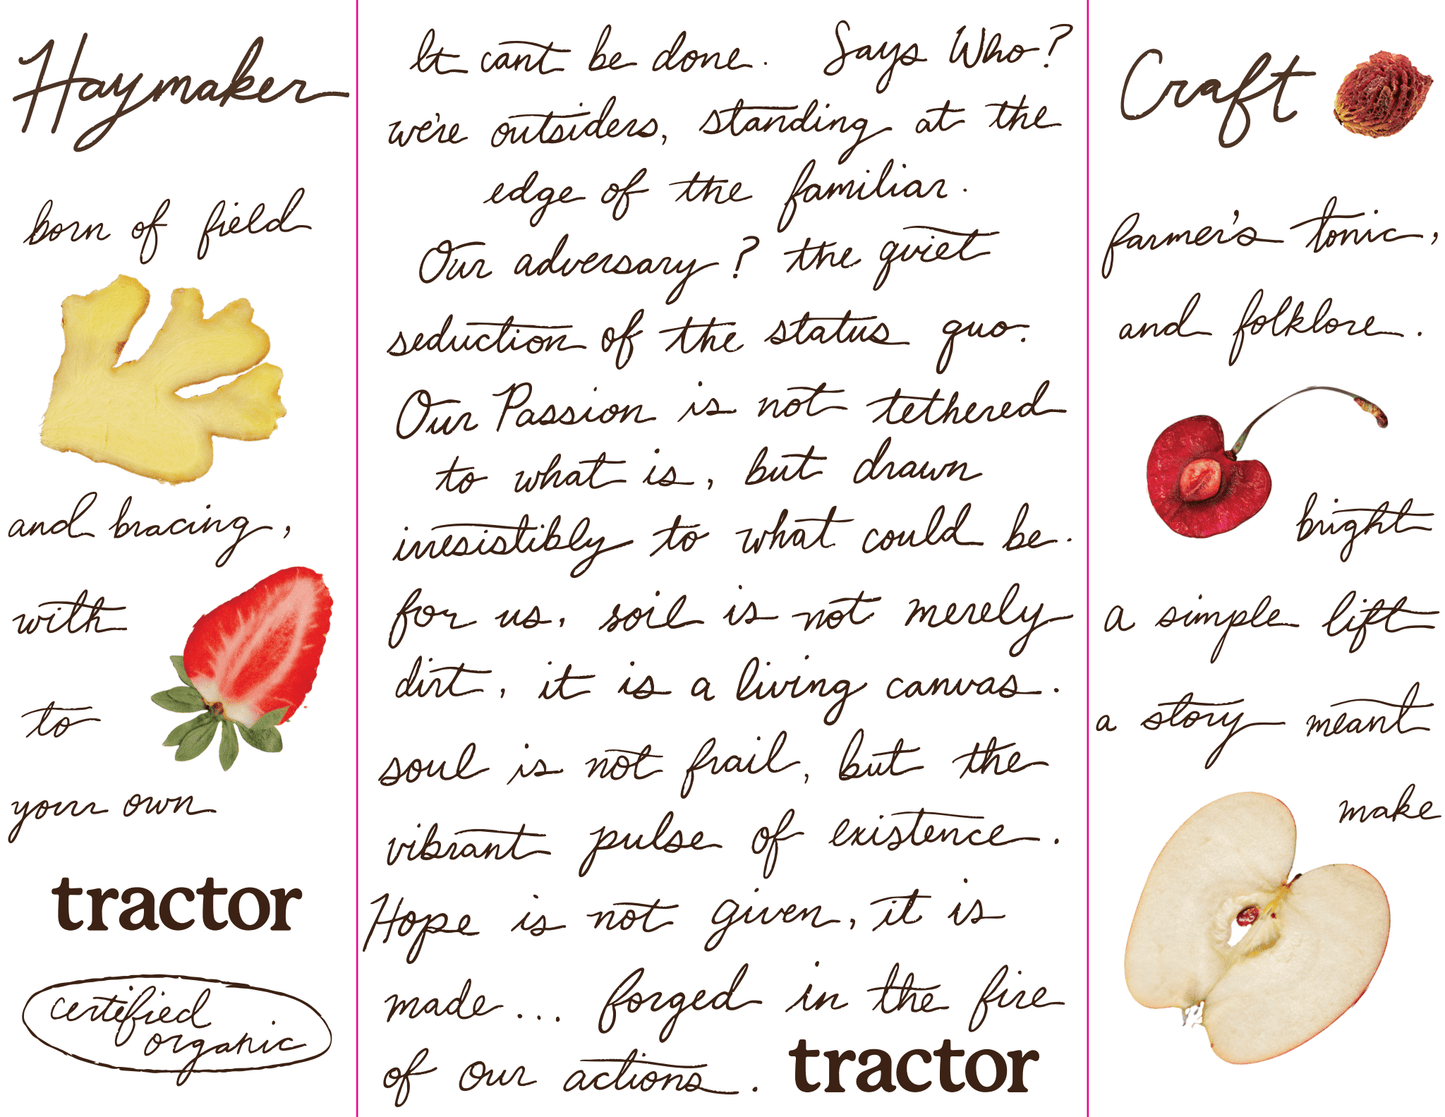 Haymaker
born of field
and bracing,
with
to
your own
tractor
certified
organic
It cant be done. Says Who?
we're outsiders, standing at the
edge of the familiar.
Our adversary? the quiet
seduction of the status quo.
Our Passion is not tethered
to what is, but drawn
irresistibly to what could be.
for us, soil is not merely
dirt, it is a living canvas.
soul is not frail, but the
vibrant pulse of existence.
Hope is not given, it is
made... forged in the fire
of our actions. tractor
Craft
farmer's tonic,
and folklore.
bright
a simple lift
a story meant
make